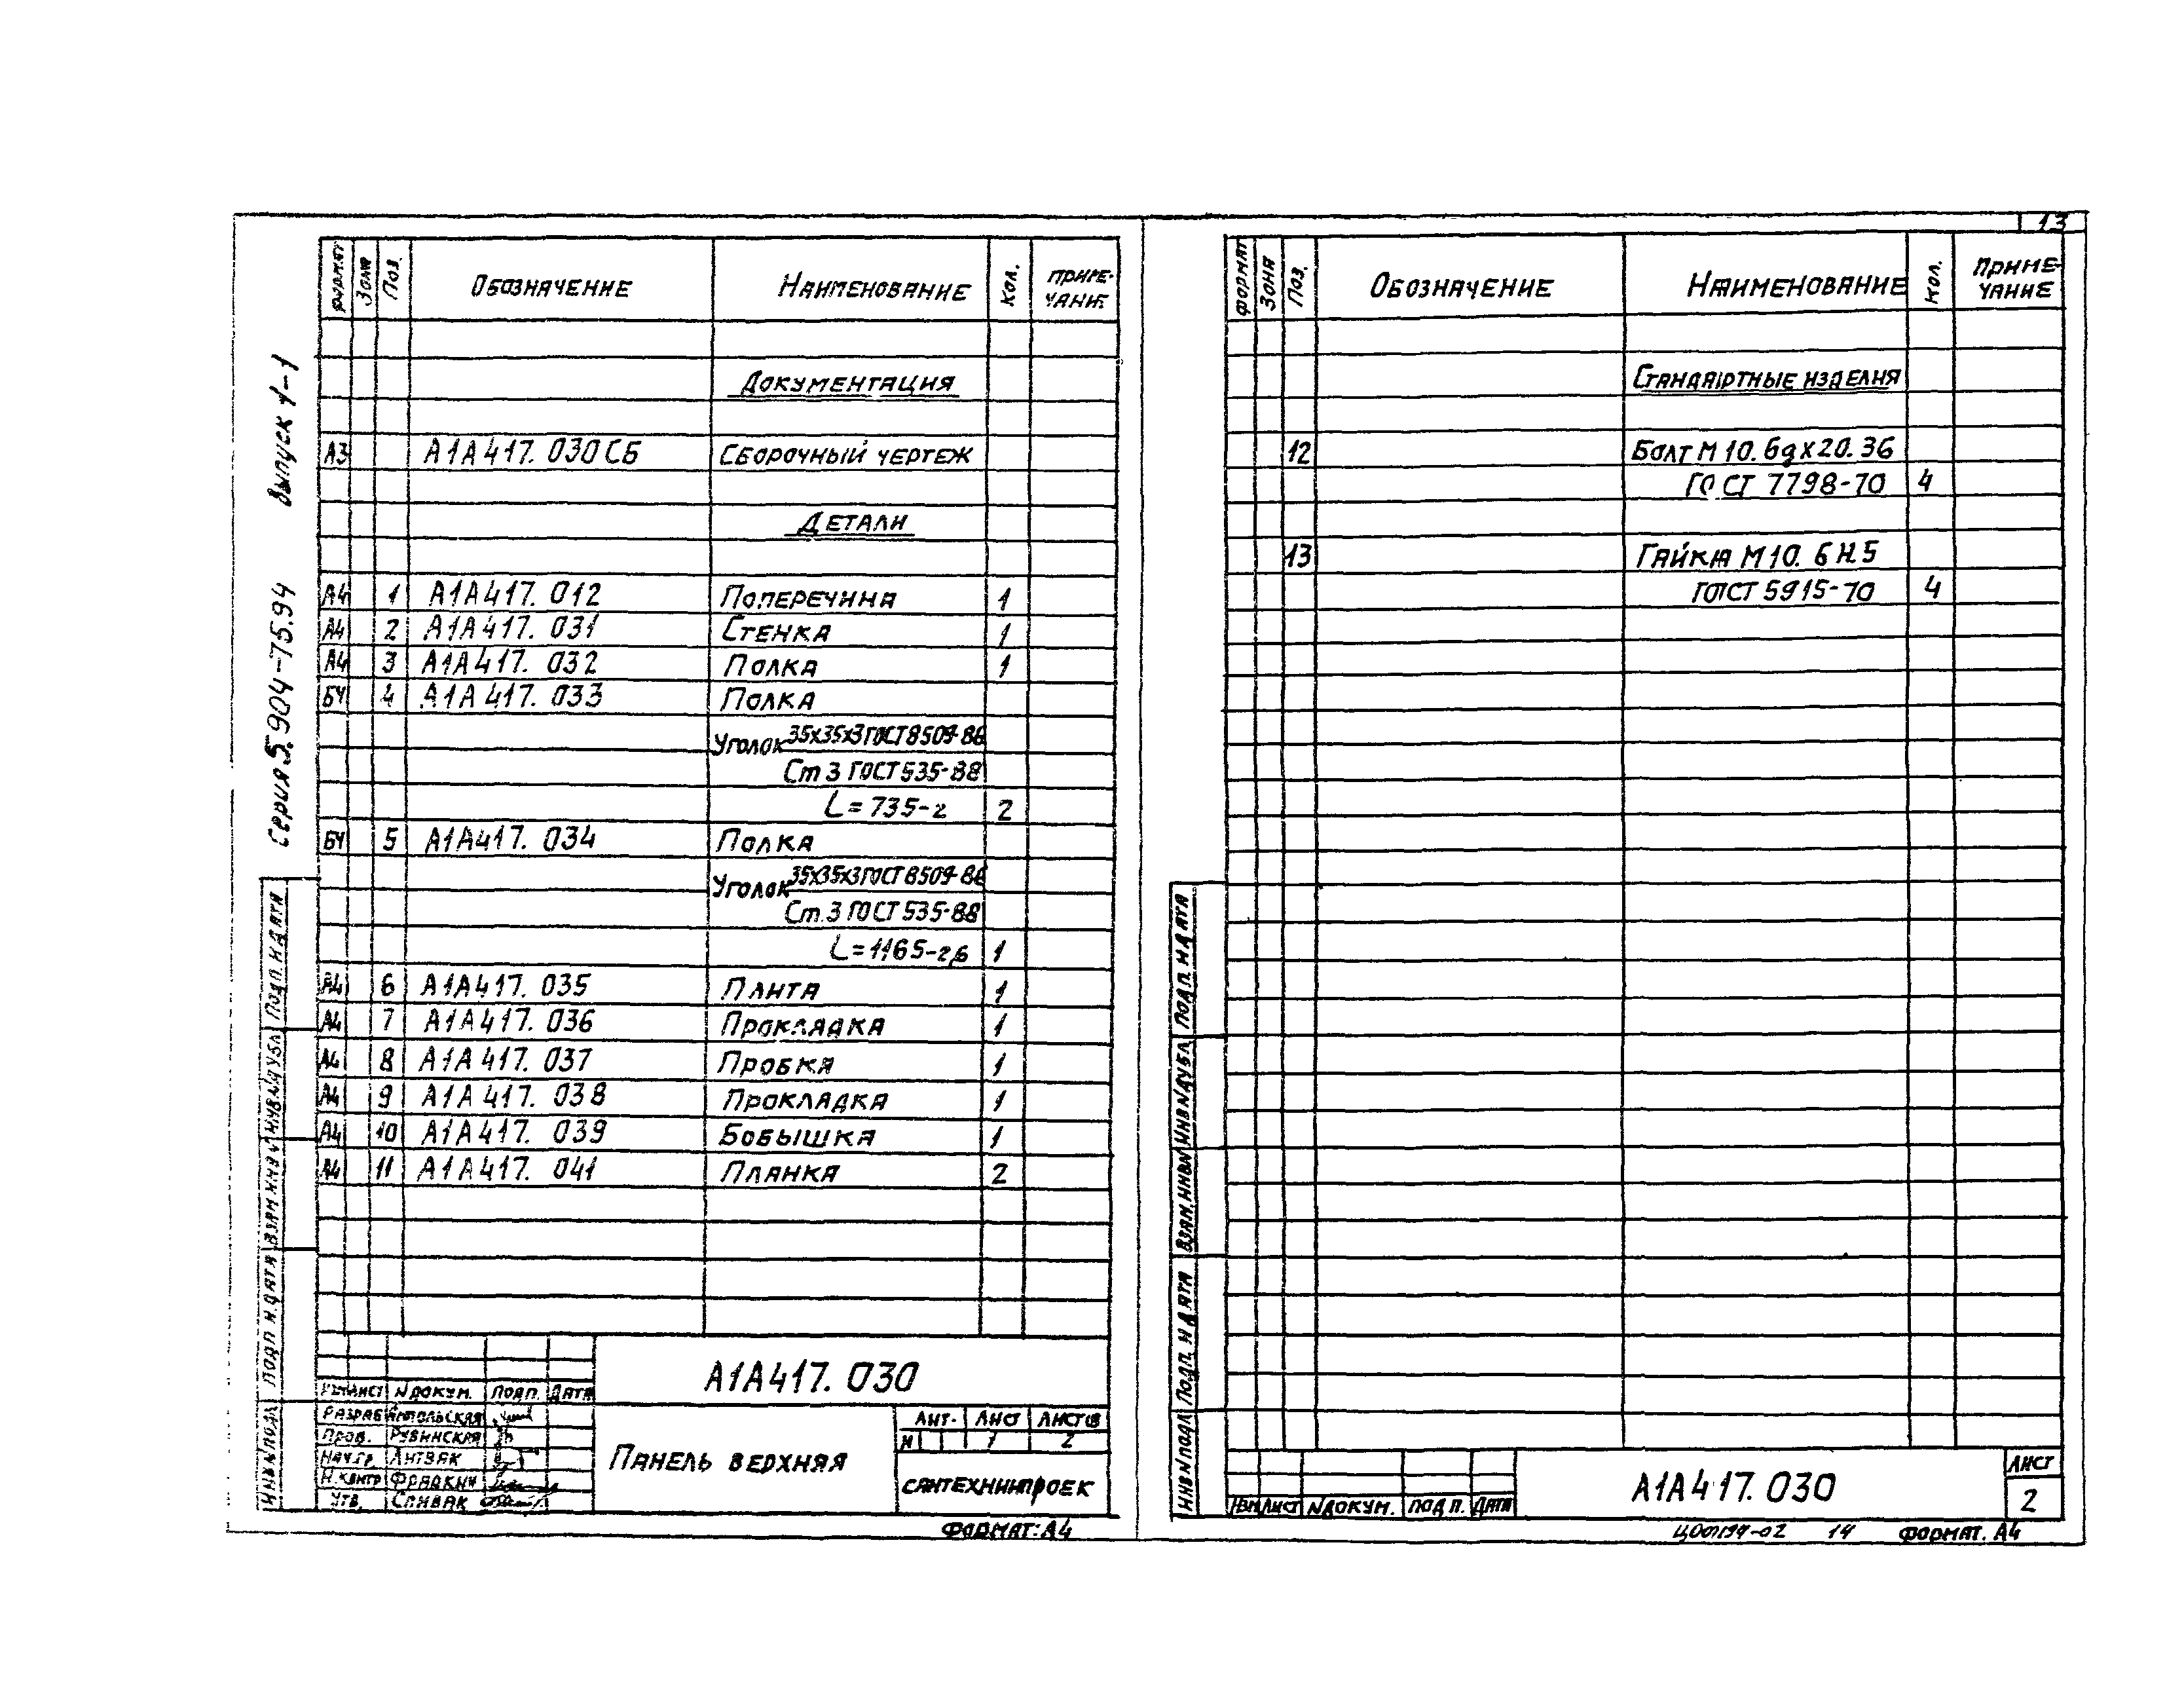 13
Серия 5.904-75.94 Выпуск 1-1
Формат Зона Поз. Обозначение Наименование Кол. Примечание
Документация
А3 А1А417.030СБ Сборочный чертеж
Детали
А4 1 А1А417.012 Поперечина 1
А4 2 А1А417.031 Стенка 1
А4 3 А1А417.032 Полка 1
БЧ 4 А1А417.033 Полка
Уголок 35х35х3 ГОСТ 8509-86
Ст 3 ГОСТ 535-88
L=735-г 2
БЧ 5 А1А417.034 Полка
Уголок 35х35х3 ГОСТ 8509-86
Ст.3 ГОСТ 535-88
L=1165- 1
А4 6 А1А417.035 Плита 1
А4 7 А1А417.036 Прокладка 1
А4 8 А1А417.037 Пробка 1
А4 9 А1А417.038 Прокладка 1
А4 10 А1А417.039 Бобышка 1
А4 11 А1А417.041 Планка 2
Подп. и дата
Инв.N дубл
Взам.инв.N
Подп. и дата
Инв.N подл
Изм Лист N докум. Подп. Дата
А1А417.030
Разраб
Пров. Рубинская
Нач.гр. Литвак
Н.контр Фрадкин
Утв. Спивак
Панель верхняя
Лит. Лист Листов
И 1 2
Сантехниипроек
Формат: А4
Формат Зона Поз. Обозначение Наименование Кол. Примечание
Стандартные изделия
12 Болт М10.6gх20.36
ГОСТ 7798-70 4
13 Гайка М10.6Н.5
ГОСТ 5915-70 4
Подп. и дата
Инв.N дубл
Взам.инв.N
Подп. и дата
Инв.N подл
Изм Лист N докум. Подп. Дата
А1А417.030
Лист
2
14 Формат. А4